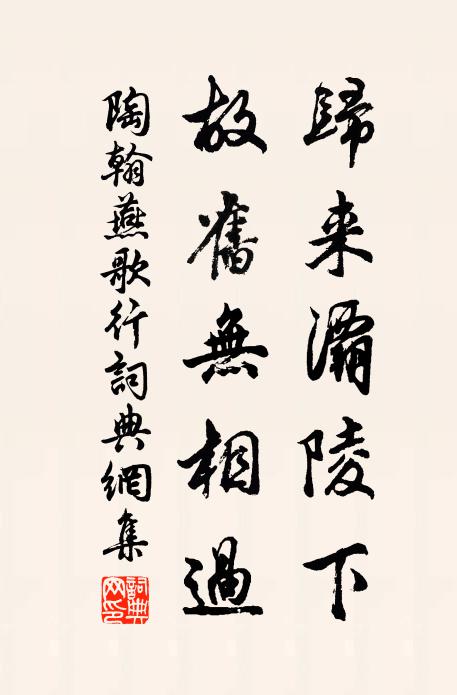 歸来灞陵下
故舊無相過
陶翰燕歌行詞典網集
詞典网印